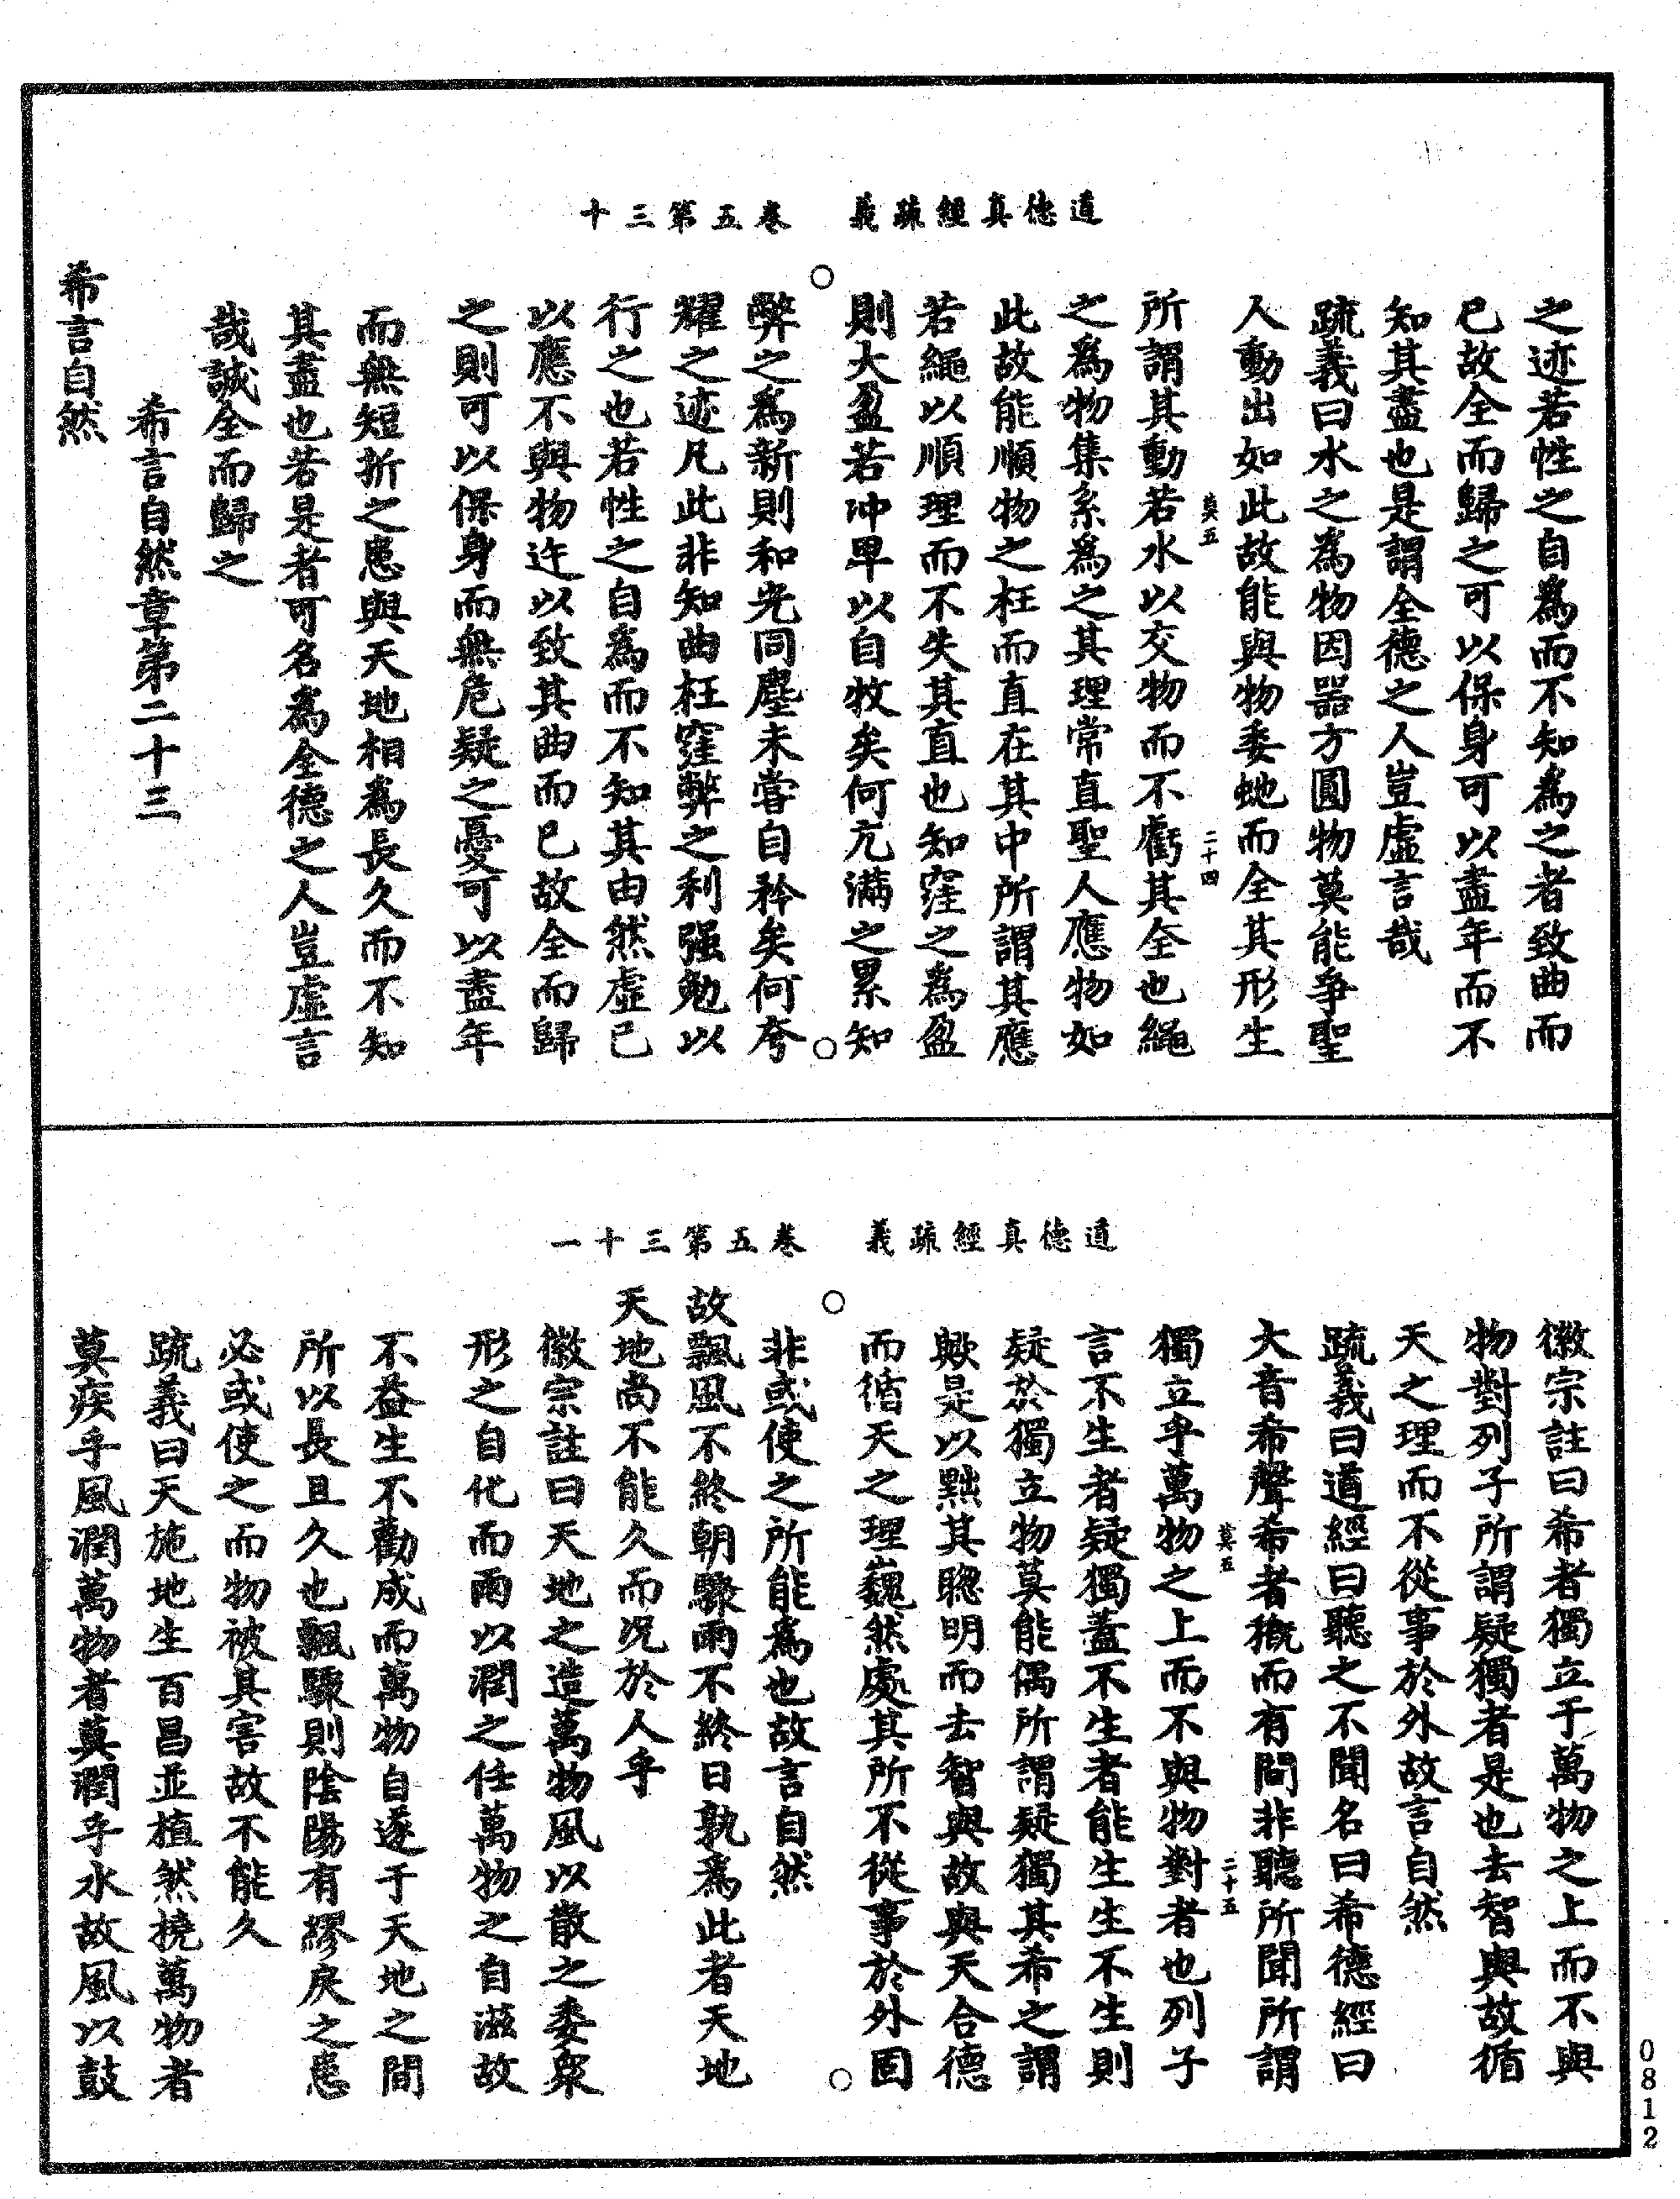 道德真經疏義　卷五第三十
之迹若性之自為而不知為之者致曲而
已故全而歸之可以保身可以盡年而不
知其盡也是謂全德之人豈虛言哉
疏義曰水之為物因器方圓物莫能爭聖
人動出如此故能與物委虵而全其形生
莫五　二十四
所謂其動若水以交物而不虧其全也繩
之為物集系為之其理常直聖人應物如
此故能順物之枉而直在其中所謂其應
若繩以順理而不失其直也知窪之為盈
則大盈若冲卑以自牧矣何亢滿之累知
弊之為新則和光同塵未嘗自矜矣何夸
耀之迹凡此非知曲枉窪弊之利强勉以
行之也若性之自為而不知其由然虛己
以應不與物迕以致其曲而已故全而歸
之則可以保身而無危疑之憂可以盡年
而無短折之患與天地相為長久而不知
其盡也若是者可名為全德之人豈虛言
哉誠全而歸之
希言自然章第二十三
希言自然
道德真經疏義　卷五第三十一
徽宗註曰希者獨立于萬物之上而不與
物對列子所謂疑獨者是也去智與故循
天之理而不從事於外故言自然
疏義曰道經曰聽之不聞名曰希德經曰
大音希聲希者槪而有間非聽所聞所謂
莫五　二十五
獨立乎萬物之上而不與物對者也列子
言不生者疑獨蓋不生者能生生不生則
疑於獨立物莫能偶所謂疑獨其希之謂
歟是以黜其聰明而去智與故與天合德
而循天之理巍然處其所不從事於外固
非或使之所能為也故言自然
故飄風不終朝驟雨不終日孰為此者天地
天地尚不能久而況於人乎
徽宗註曰天地之造萬物風以散之委衆
形之自化而雨以潤之任萬物之自滋故
不益生不勸成而萬物自遂于天地之間
所以長且久也飄驟則陰陽有繆戾之患
必或使之而物被其害故不能久
疏義曰天施地生百昌並植然撓萬物者
莫疾乎風潤萬物者莫潤乎水故風以鼓
0812